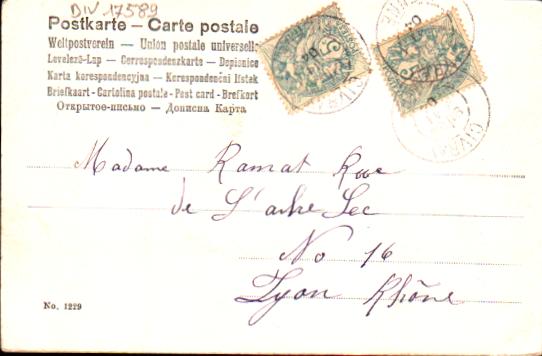 DIV 17589
Postkarte – Carte postale
Weltpostverein – Union postale universelle
Levelező-Lap – Correspondenzkarte – Dopisnice
Karta korespondencyjna – Korespondenční lístek
Briefkaart – Cartolina postale – Post card – Brefkort
Открытое-письмо – Дописна Карта
Madame Ramat Rue
de L'arbre Sec
No 16
Lyon Rhône
No. 1229